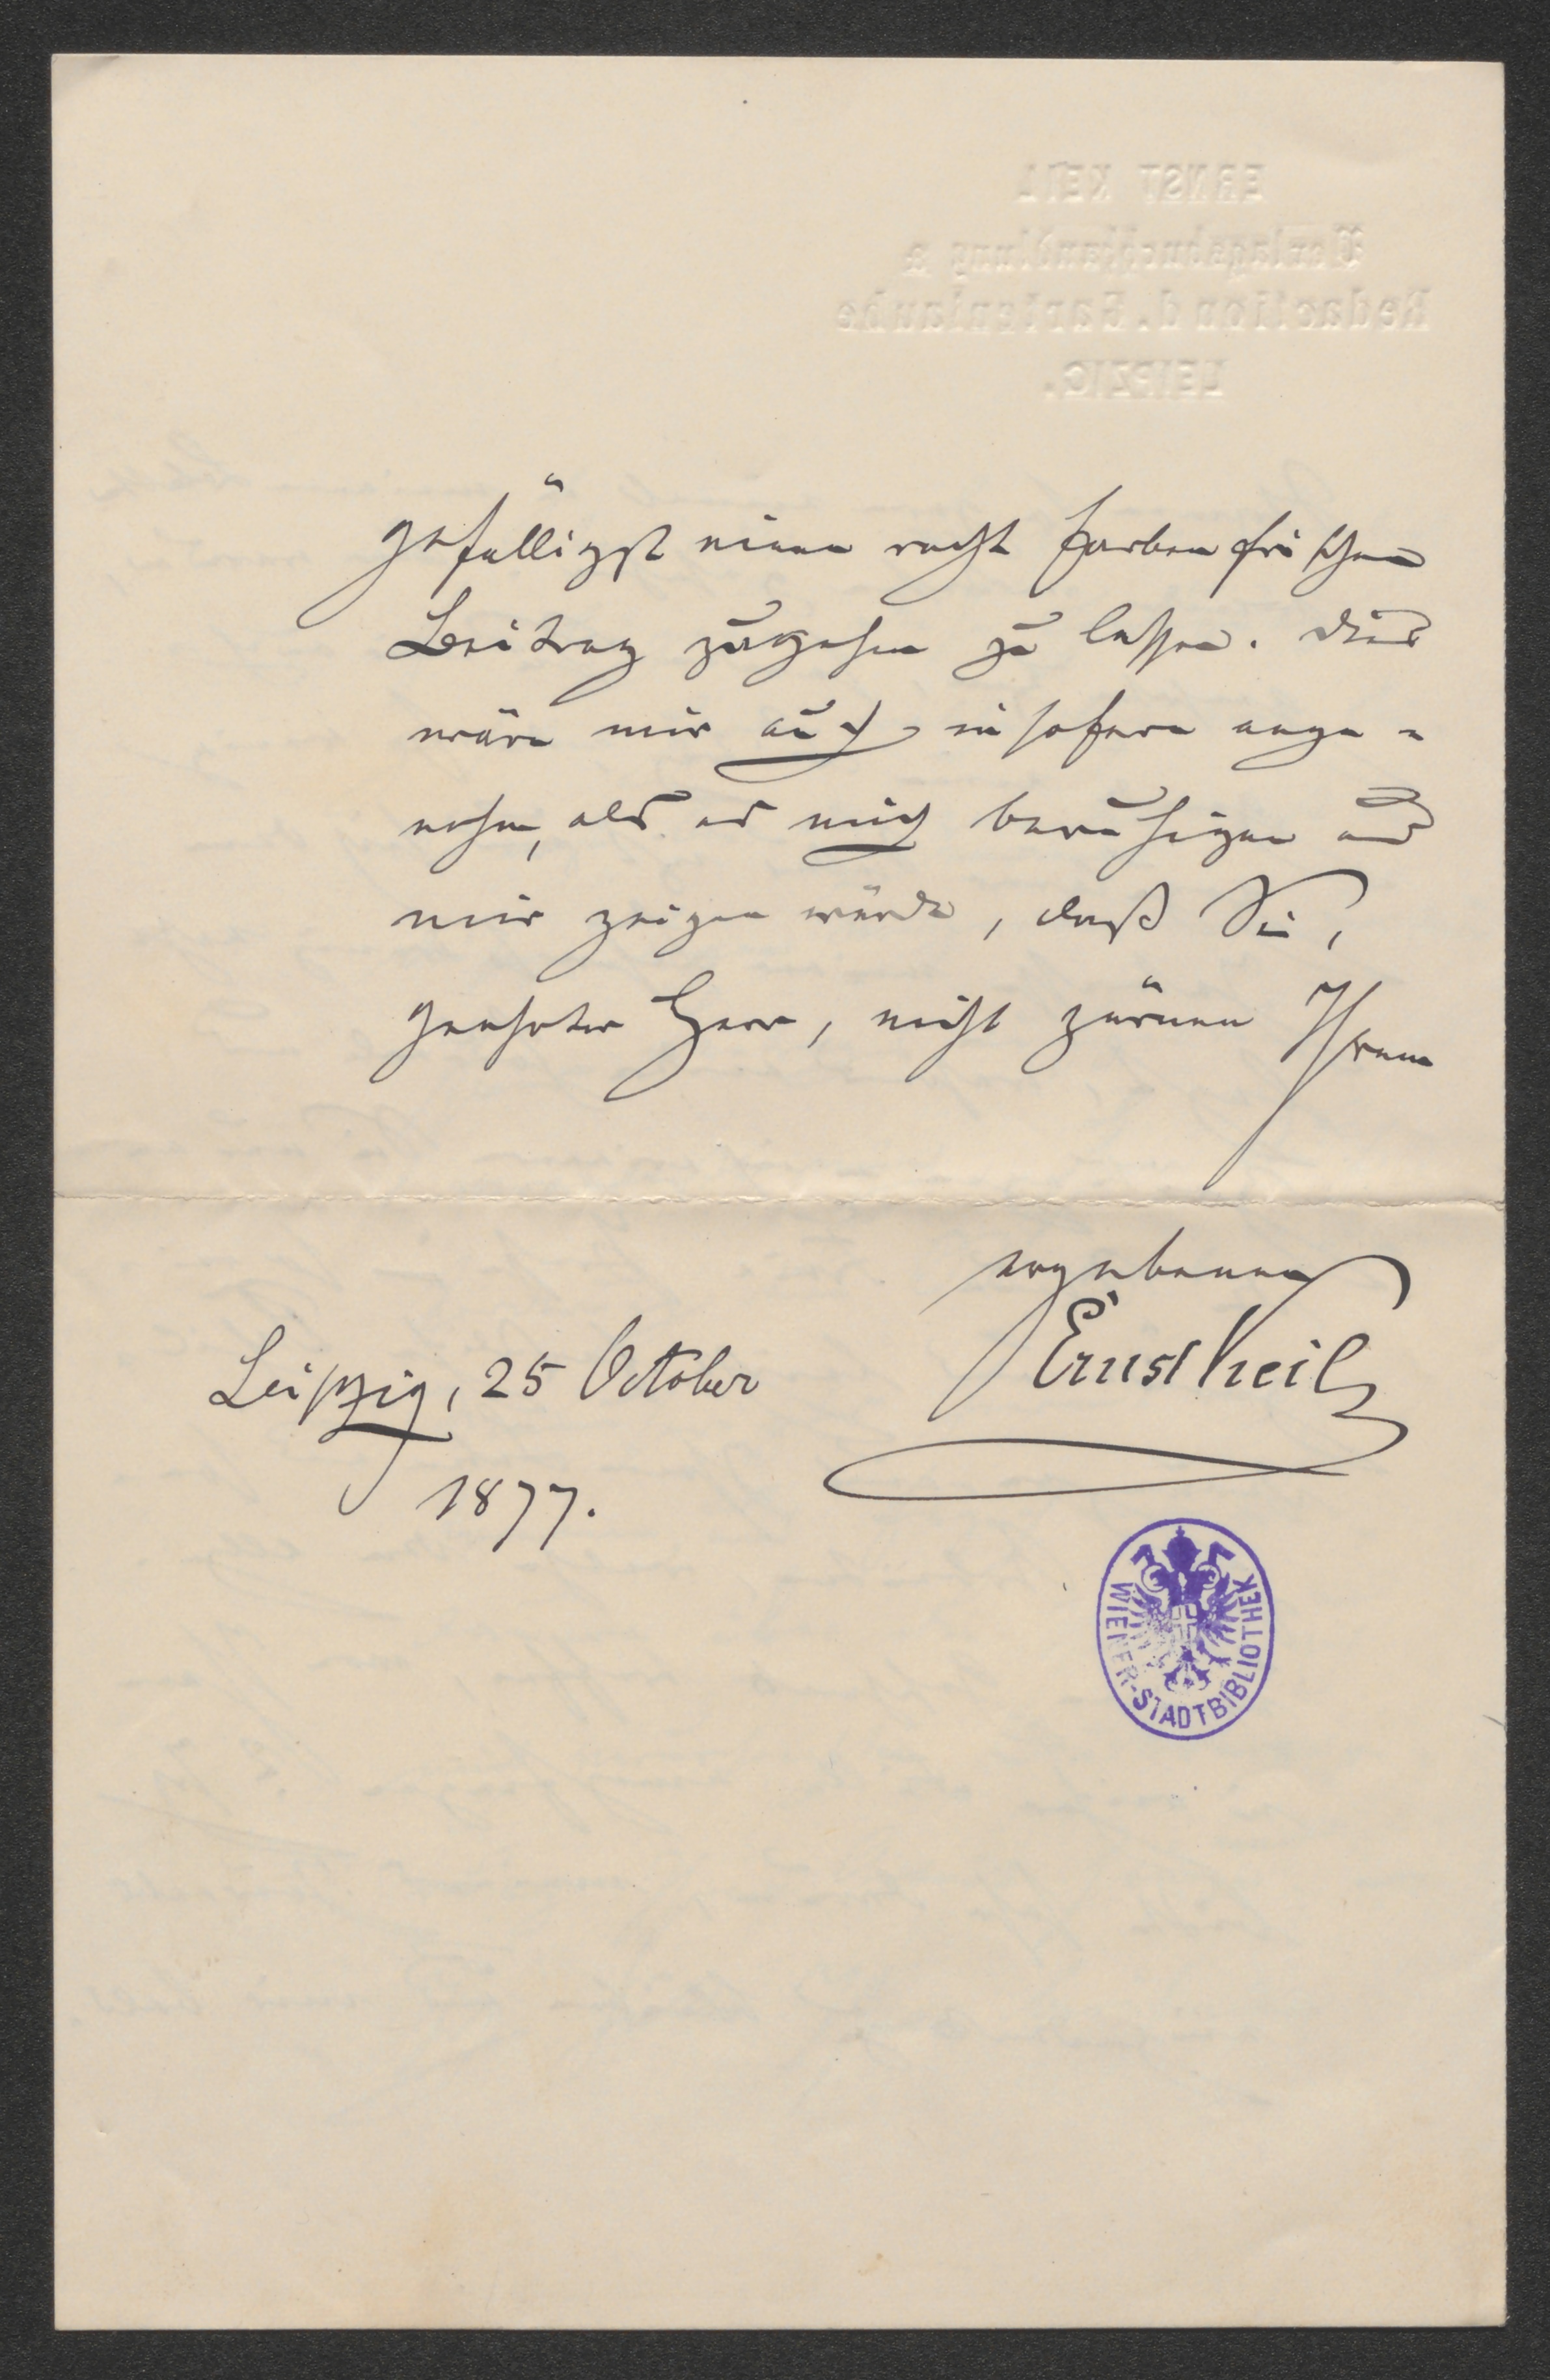 ERNST KEIL
Verlagsbuchhandlung &
Redaction d. Gartenlaube
LEIPZIG.
gefälligst einen recht farbenfrischen
Beitrag zugehen zu lassen. Dies
wäre mir auch insofern ange-
nehm, als es mich beruhigen und
mir zeigen würde, daß Sie,
geehrter Herr, nicht zürnen Ihrem
ergebenen
Ernst Keil
Leipzig, 25 October
1877.
WIENER-STADTBIBLIOTHEK